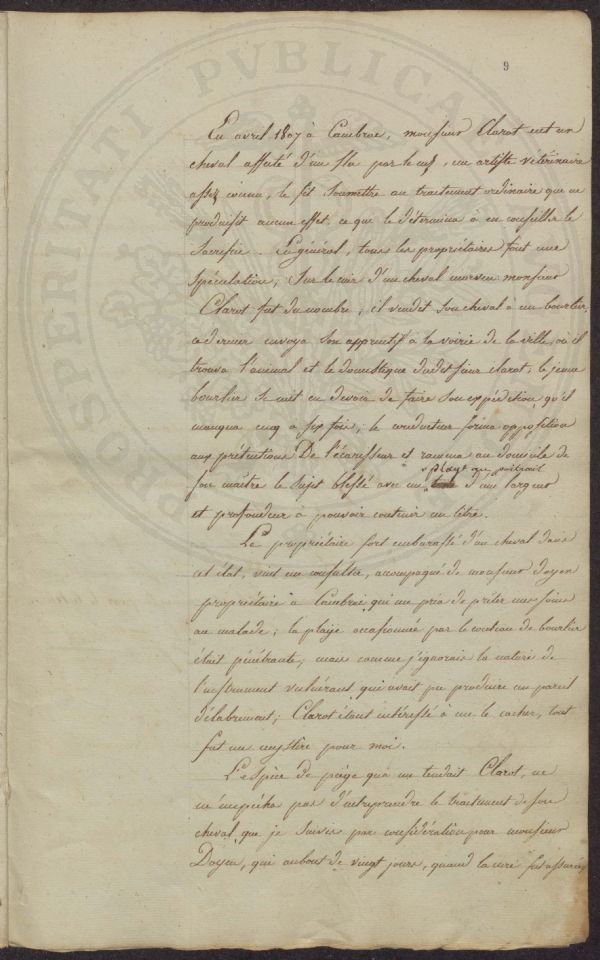 9
En avril 1807 à Cambrai, monsieur Clarot eut un
cheval affecté d'un par le artiste véterinaire
assez connu, le fit soumettre au traitement ordinaire que ne
produisit aucun effet, ce que le détermina à en conseiller le
sacrifice. En général, tous les propriétaires font une
spéculation, sur le cuir d'un cheval morveux monsieur
Clarot fut du nombre, il vendit son cheval à un bourlier,
ce dernier envoya son apprentif à la voirie de la ville, où il
trouva l'animal et le domestique dudit sieur Clarot, le jeune
bourlier se mit en devoir de faire son expédition, qu'il
manqua cinq a six fois, le conducteur forma opposition
aux prétentions De l'écarisseur et ramena au domicile de
son maître le sujet blessé avec un playe d'une largeur
et profondeur à pouvoir contenir un litre.
Le propriétaire fort embarassé d'un cheval dans
cet état, vint me consulter, accompagné de monsieur doyen
propriétaire a Cambrai qui me pria de prêter mes soins
au malade; la plaije occasionnée par le couteau de bourlier
était pénétrante, mais comme j'ignorais la nature de
l'instrument vulnérant qui avait pu produire un pareil
délabrement; Clarot étant intéressé à me le cacher, tout
fut un mystère pour moi.
L'espèce de piège que me tendait Clarot, ne
m'empécha pas d'entreprendre le traitement de son
cheval que je suivis par considération pour monsieur
Doyen, qui aubout de vingt jours, quand la cure fut assurée
PERITATI PVBLICA